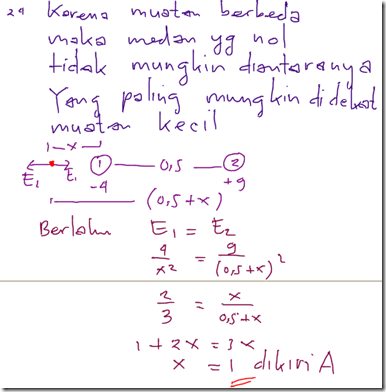 24 Karena muatan berbeda
maka medan yg nol
tidak mungkin diantaranya
Yang paling mungkin didekat
muatan kecil
1—x—
E₁ E₁ ① — 0,5 — ②
-4 +9
(0,5+x)
Berlaku E₁ = E₂
4/x² = 9/(0,5+x)²
2/3 = x/0,5+x
1+2x = 3x
x = 1 dikiri A